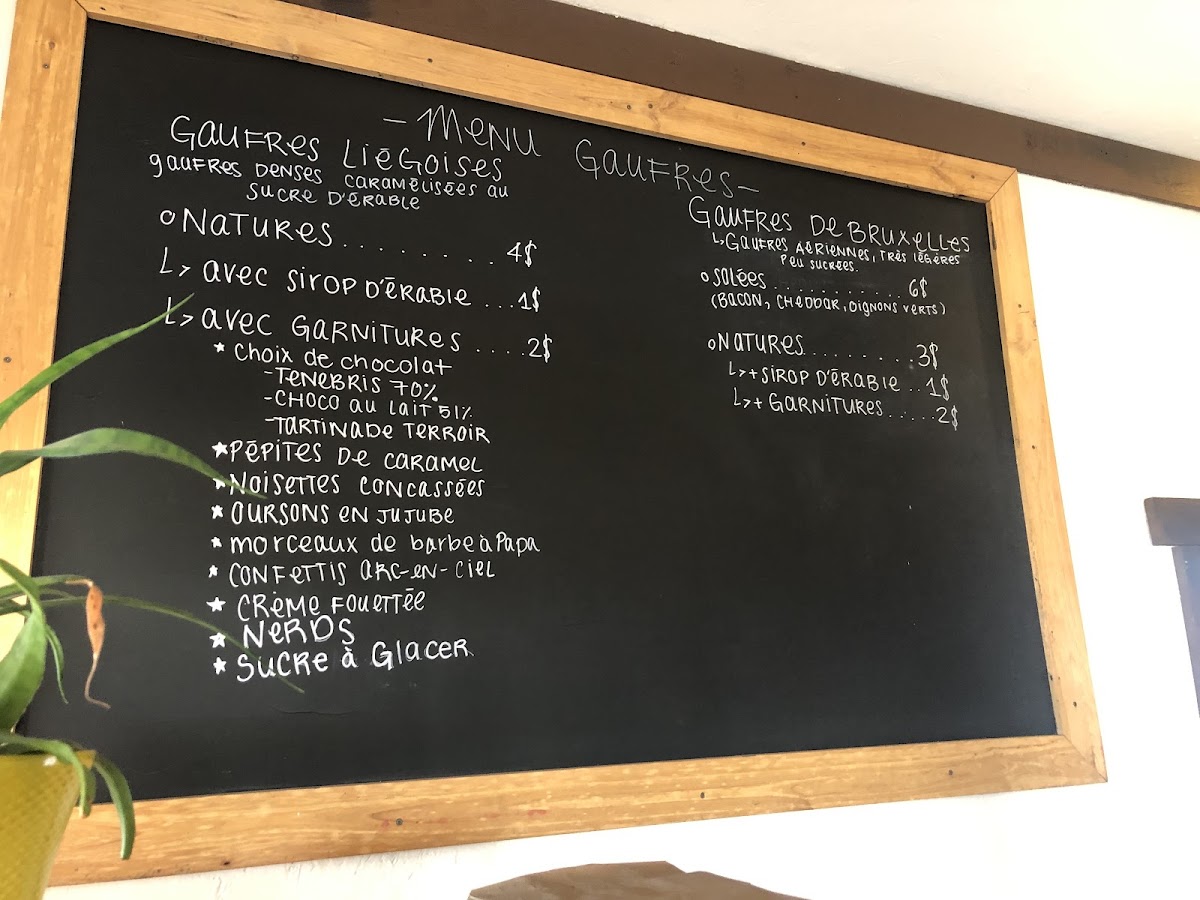 - Menu Gaufres -
Gaufres Liégoises
gaufres denses caramélisées au
sucre d'érable
o Natures........ 4$
↳ avec sirop d'érable ...1$
↳ avec garnitures ....2$
* Choix de chocolat
- Tenebris 70%
- Choco au lait 51%
- Tartinade terroir
* Pépites de caramel
* Noisettes concassées
* Oursons en jujube
* morceaux de barbe à Papa
* Confettis arc-en-ciel
* Crème fouettée
* Nerds
* Sucre à Glacer
Gaufres de Bruxelles
↳ Gaufres aériennes, très légères
peu sucrées.
o Salées ............ 6$
(Bacon, cheddar, oignons verts)
o Natures.......... 3$
↳ + sirop d'érable ..1$
↳ + garnitures .....2$